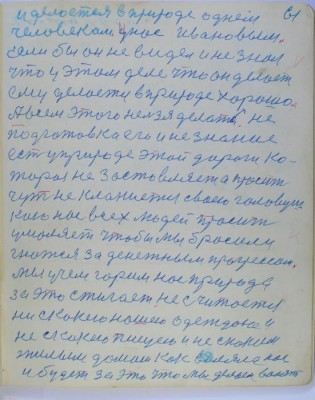 и делается в природе однем 61
человеком у нас Ивановым.
если бы он не видел и не знал
что у этом деле что он делает
ему делается в природе хорошо.
А всем этого нельзя делать. не
подготовка его и не знание
ест у природе этой дороги ко-
торая не заставляет а просит
чут не кланиется своею головушкою
нас всех людей просит
умоляет чтобы мы бросили
гнатся за денежным процессом.
мы учем горим нас природа
за это стигает не считается
ни скакею нашею одеждою и
не скакею пищею и не скаким
жилым домом как валяла нас
и будет за это что мы делаем валят